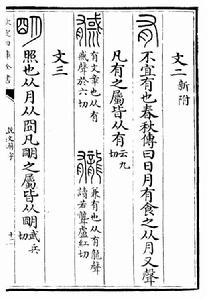 文二新附
有不宜有也春秋傳曰日月有食之从月又聲
凡有之屬皆从有云九切
有文章也从有
聲於六切
龓兼有也从有龍聲
讀若聾盧紅切
文三
朙照也从月从囧凡朙之屬皆从朙武兵切
說文解字